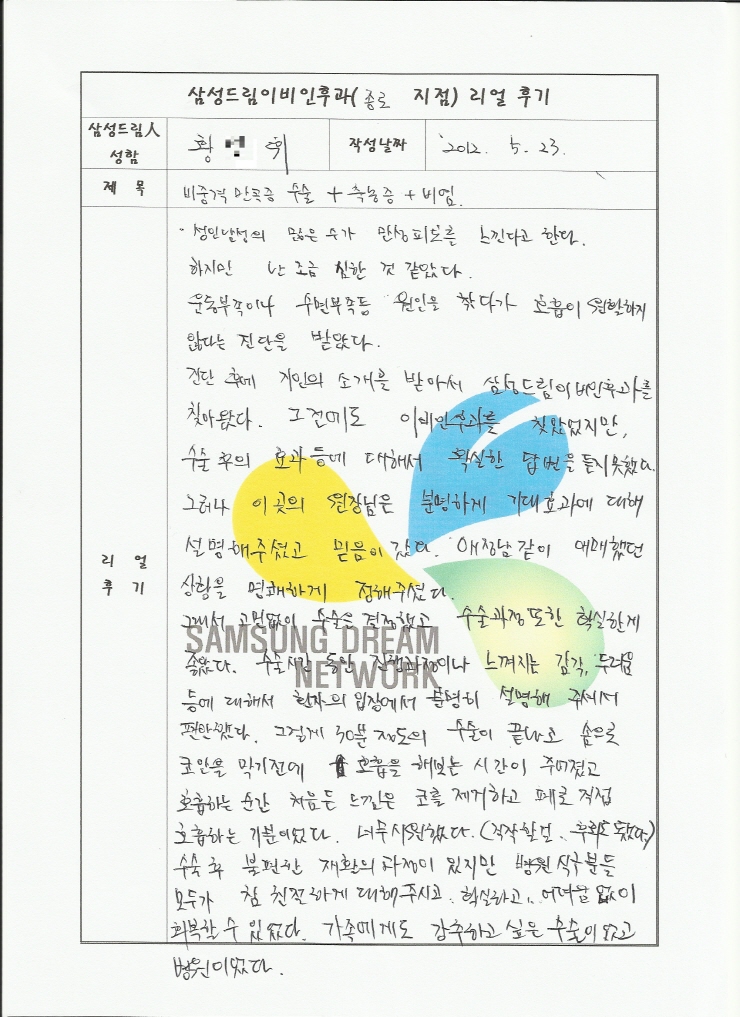 삼성드림이비인후과(종로 지점) 리얼 후기
삼성드림人 성함
황 희
작성날짜
2012. 5. 23.
제 목
비중격 만곡증 수술 + 축농증 + 비염.
리 얼 후 기
성인남성의 많은 수가 만성피로를 느낀다고 한다.
하지만 난 조금 심한 것 같았다.
운동부족이나 수면부족등 원인을 찾다가 호흡이 원활하지
않다는 진단을 받았다.
진단 후에 지인의 소개를 받아서 삼성드림이비인후과를
찾아왔다. 그전에도 이비인후과를 찾았었지만,
수술 후의 효과 등에 대해서 확실한 답변을 듣지못했다.
그러나 이 곳의 원장님은 분명하게 기대효과에 대해
설명해주셨고 믿음이 갔다. 애정남같이 애매했던
상황을 명쾌하게 정해주셨다.
그래서 고민없이 수술은 결정했고 수술과정 또한 확실한게
좋았다. 수술시간 동안 진행과정이나 느껴지는 감각, 두려움
등에 대해서 환자의 입장에서 분명히 설명해 주셔서
편안했다. 그렇게 30분 정도의 수술이 끝나고 솜으로
코안을 막기전에 호흡을 해보는 시간이 주어졌고
호흡하는 순간 처음든 느낌은 코를 제거하고 폐로 직접
호흡하는 기분이었다. 너무시원했다. (진작할걸.. 후회도 됐었다)
수술 후 불편한 재활의 과정이 있지만 병원 식구분들
모두가 참 친절하게 대해주시고, 확실하고, 어려움 없이
회복할 수 있었다. 가족에게도 강추하고 싶은 수술이었고
병원이었다.
SAMSUNG DREAM
NETWORK